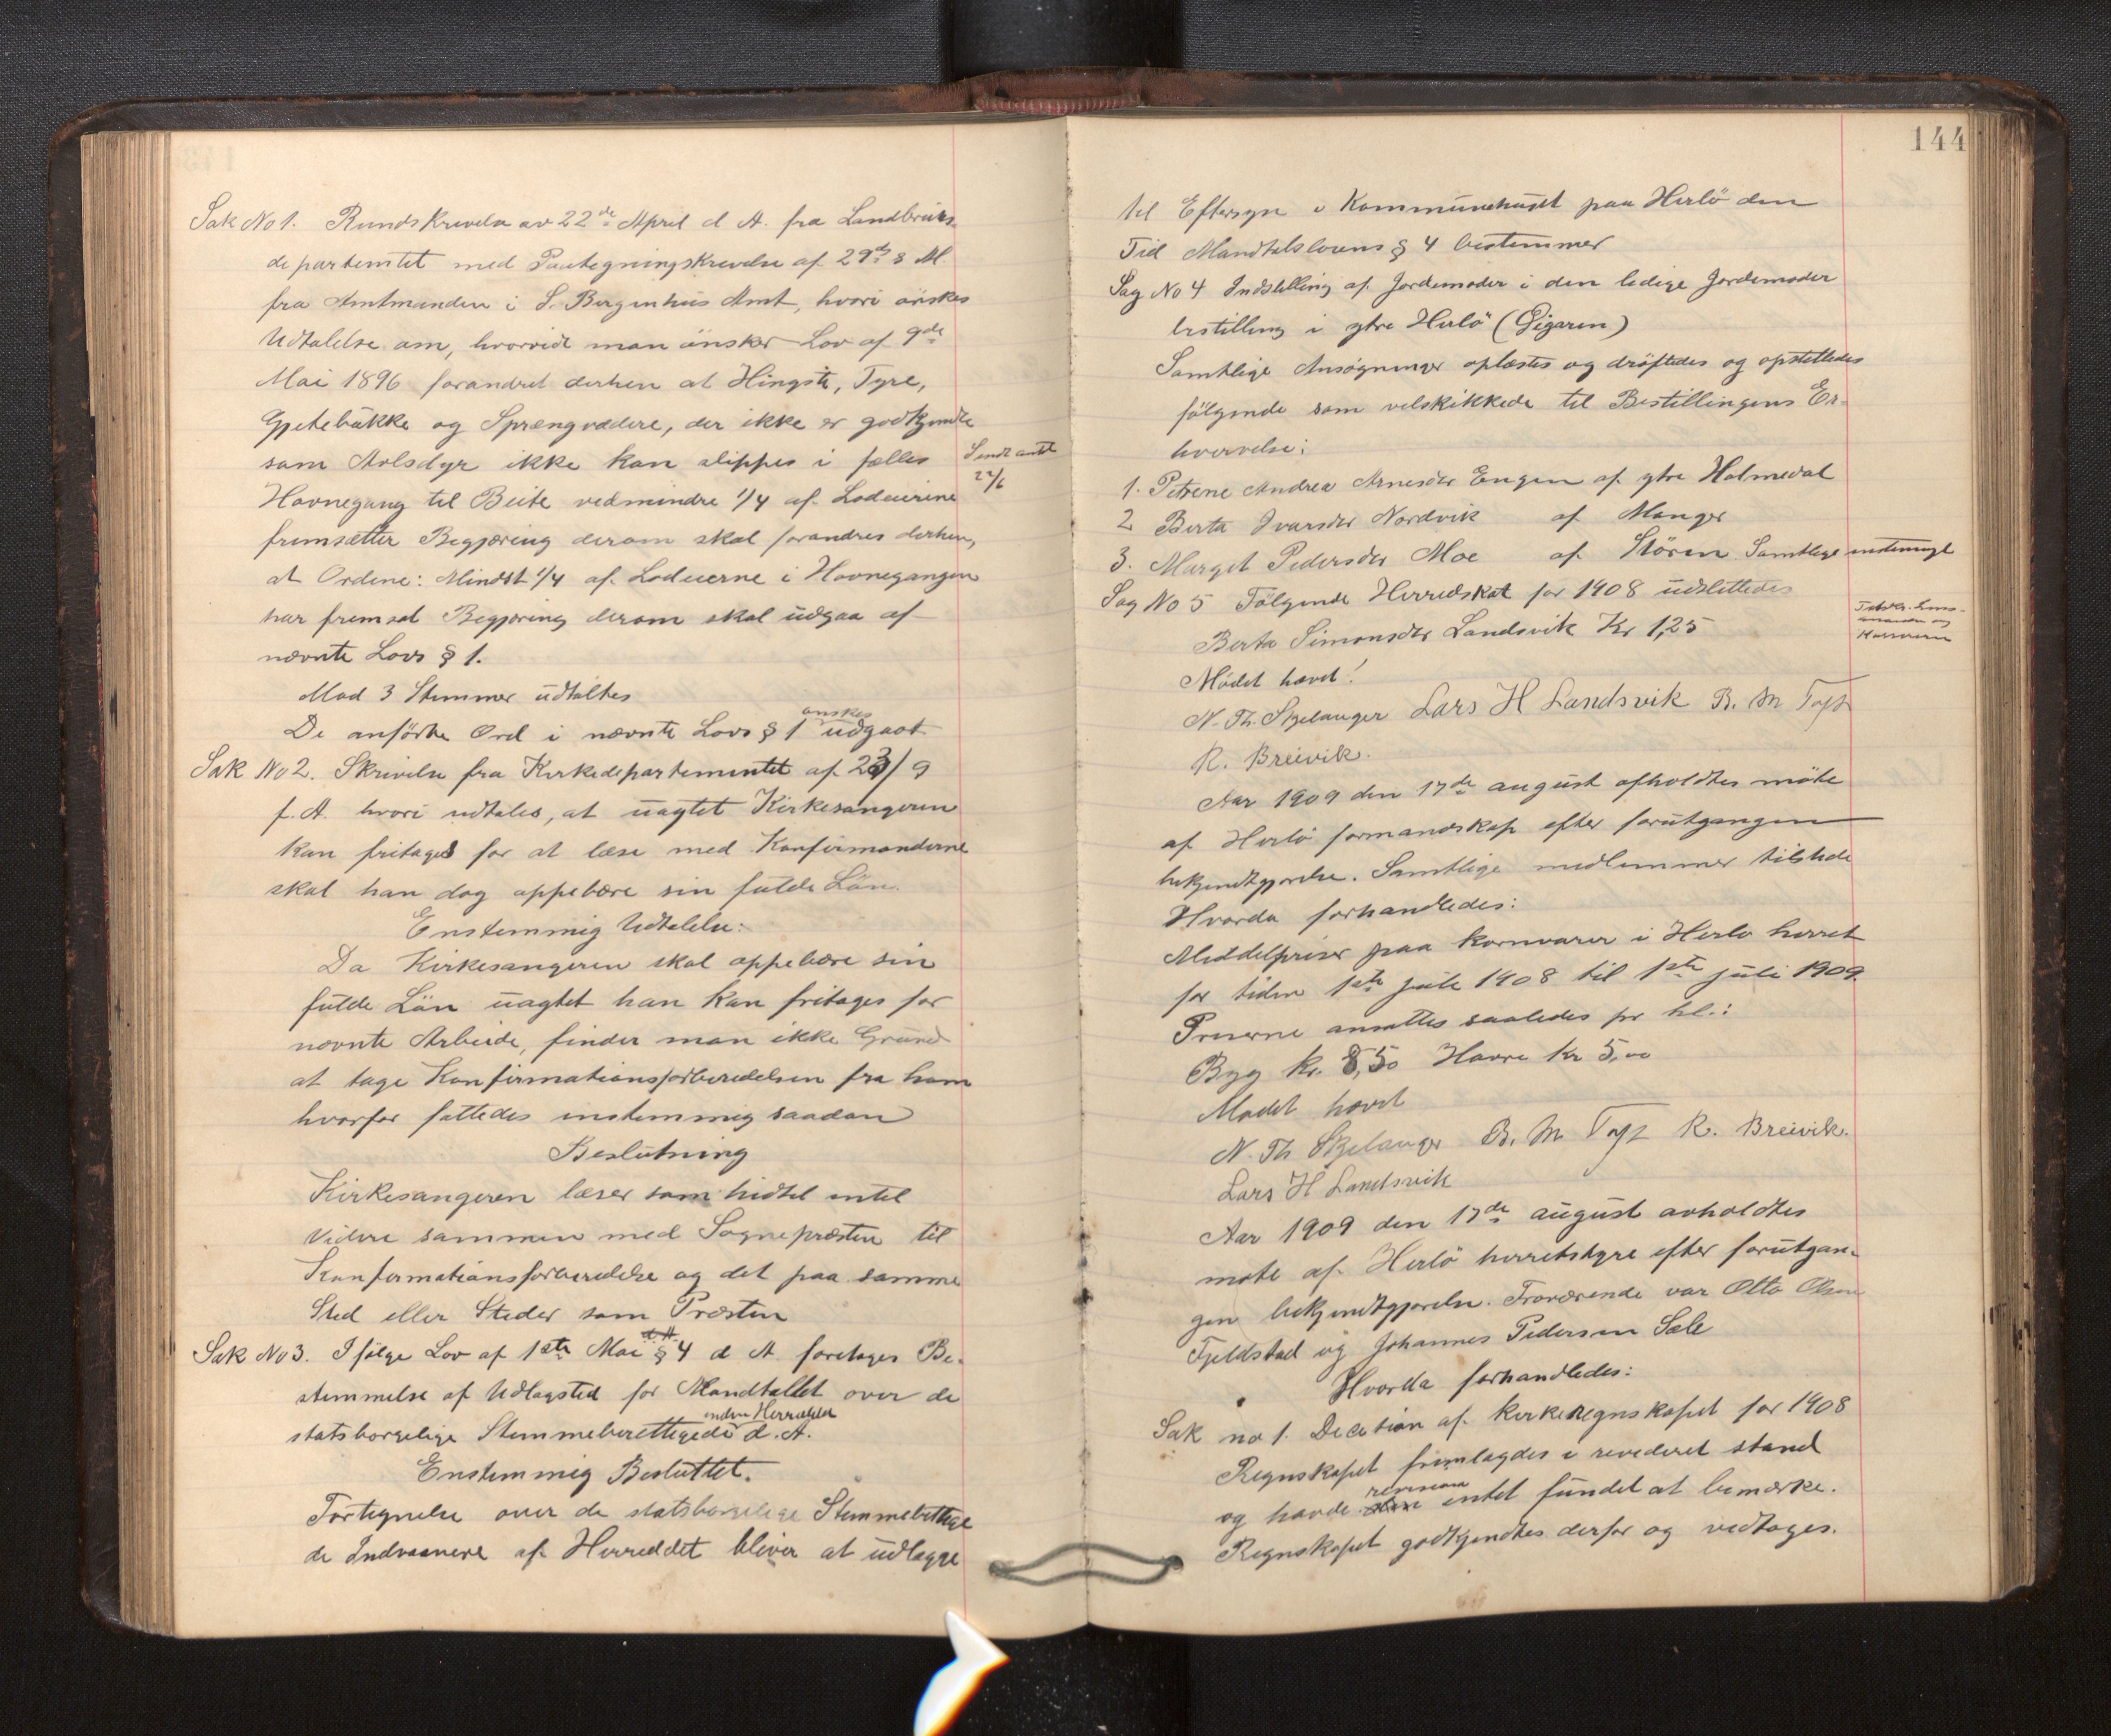 Sak No 1. Rundskrivelse av 22de April d A. fra Landbruks-
departemtet med Paategningskrivelse af 29de s M.
fra Amtmanden i S. Bergenhus Amt, hvori önskes
Udtalelse om, hvorvidt man önsker Lov af 9de
Mai 1896 forandret derhen at Hingste, Tyre,
Gjetebukke og Sprængvædere, der ikke er godkjendte
som Avlsdyr ikke kan slippes i fælles
Sendt amtet
22/6
Havnegang til Beite vedmindre 1/4 af Lodeierine
fremsætter Begjæring derom skal forandres derhen,
at Ordene: Mindst 1/4 af Lodeierne i Havnegangen
har fremsat Begjæring derom skal udgaa af
nævnte Lovs § 1.
Mod 3 Stemmer udtaltes
De anförte Ord i nævnte Lovs § 1 önskes udgaat
Sak No 2. Skrivelse fra Kirkedepartementet af 23/9
f. A. hvori udtales, at uagtet Kirkesangeren
kan fritages for at læse med Konfirmanderne
skal han dog oppebære sin fulde Lön.
Enstemmig Udtalelse:
Da Kirkesangeren skal oppebære sin
fulde Lön uagtet han kan fritages for
nævnte Arbeide, finder man ikke Grund
at tage Konfirmationsforberedelsen fra ham
hvorfor fattedes enstemmig saadan
Beslutning
Kirkesangeren læser som hidtil intil
videre sammen med Sognepræsten til
Konfirmationsforberedelse og det paa samme
Sted eller Steder som Præsten
Sak No 3. I følge Lov af 1ste Mai § 4 d A. foretages Be-
stemmelse af Udlagsted for Mandtallet over de
statsborgelige Stemmeberettigede inden Herredet d. A.
Enstemmig Besluttet.
Fortegnelse over de statsborgelige Stemmebettige
de Indvaanere af Herreddet bliver at udlægge
144
til Eftersyn i Kommunehuset paa Herlö den
Tid Mandtalslovens § 4 bestemmer
Sag No 4 Indstilling af Jordemoder i den ledige Jordemoder
bestilling i ytre Herlö (Gigaren)
Samtlige Ansögninger oplæstes og dröftedes og opstilledes
fölgende som velskikkede til Bestillingens Er-
hvervelse:
1. Petrene Andrea Arnesdtr Engen af ytre Holmedal
2 Berta Ivarsdtr Nordvik af Manger
3. Marget Pedersdtr Moe af Stören Samtlige enstemmigt
Sag No 5 Fölgende Herredskat for 1908 udslettedes
Berta Simonsdtr Landsvik Kr 1,25
Mödet hævet!
N. Th. Skjelanger Lars H Landsvik B. M Toft
R. Breivik.
Aar 1909 den 17de august afholdtes möte
af Herlö formandskap efter forutgangen
bekjendtgjörelse. Samtlige medlemmer tilstede
Hvorda forhandledes:
Middelpriser paa kornvarer i Herlo herret
for tiden 1ste juli 1908 til 1ste juli 1909.
Priserne ansattes saaledes pr hl.:
Byg kr. 8,50 Havre kr 5,00
Mødet hævet
N. Th Skjelanger B. M Toft R. Breivik.
Lars H Landsvik
Aar 1909 den 17de august avholdtes
møte af Herlö herretstyre efter forutgan-
gen bekjendtgjørelse. Fraværende var Otto Olsen
Fjeldstad og Johannes Pedersen Sæle
Hvorda forhandledes:
Sak no 1. Decision af kirkeregnskapet for 1908
Regnskapet fremlagdes i revideret stand
og havde revisionen intet fundet at bemærke.
Regnskapet godkjendtes derfor og vedtages.